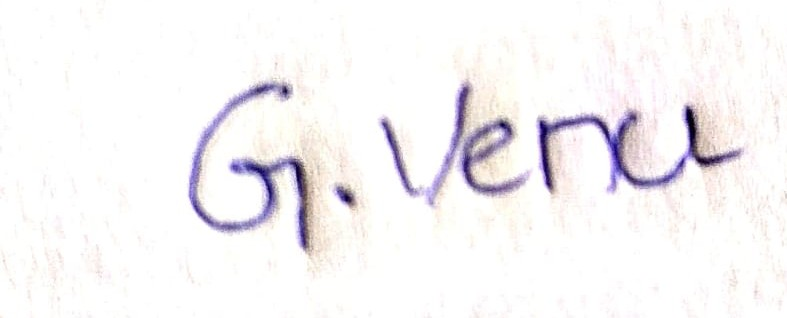 G. Venu